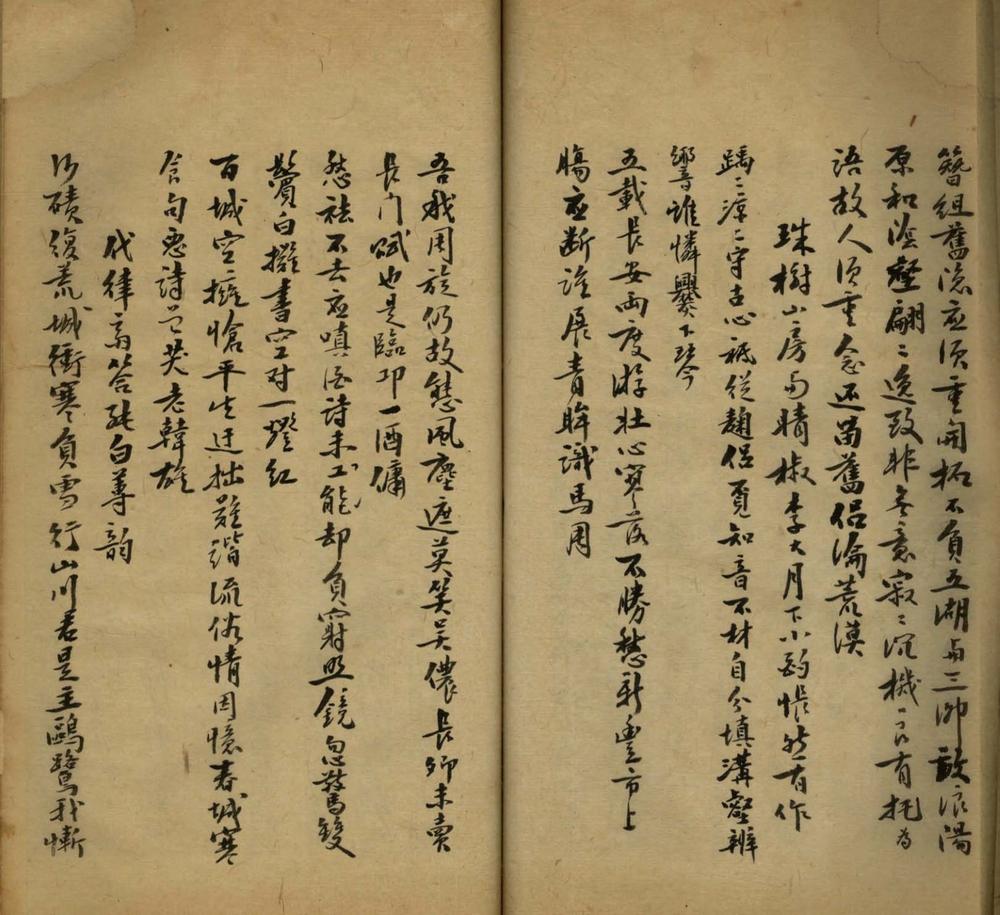 簪組舊隱應須重開拓不負五湖與三泖敲浪湯
原和塗壑翩〻逸致非無意寂〻沉機只有托為
語故人須重念还留舊侶淪荒漠
珠樹山房與晴椒李大月下小酌悵然有作
踽〻涼〻守古心祇從麴侶覓知音不材自分填溝壑辨
響誰憐爨下琴
五載長安兩度游壯心寥落不勝愁新豐市上
腸應斷誰展青眸識馬周
吾我周旋仍故態風塵遮莫笑吴儂長卿未賣
長門賦也是臨邛一酒傭
愁祛不去應嗔酒詩未工能却負窮照鏡忽驚雙
鬢白擁書空对一燈紅
百城空擁愴平生迂拙難諧流俗情因憶春城寒
食句忍詩哭老韓雄
代律齋答純白尊韵
沙磧復荒城衝寒負雪行山川君是主鷗鷺我慚